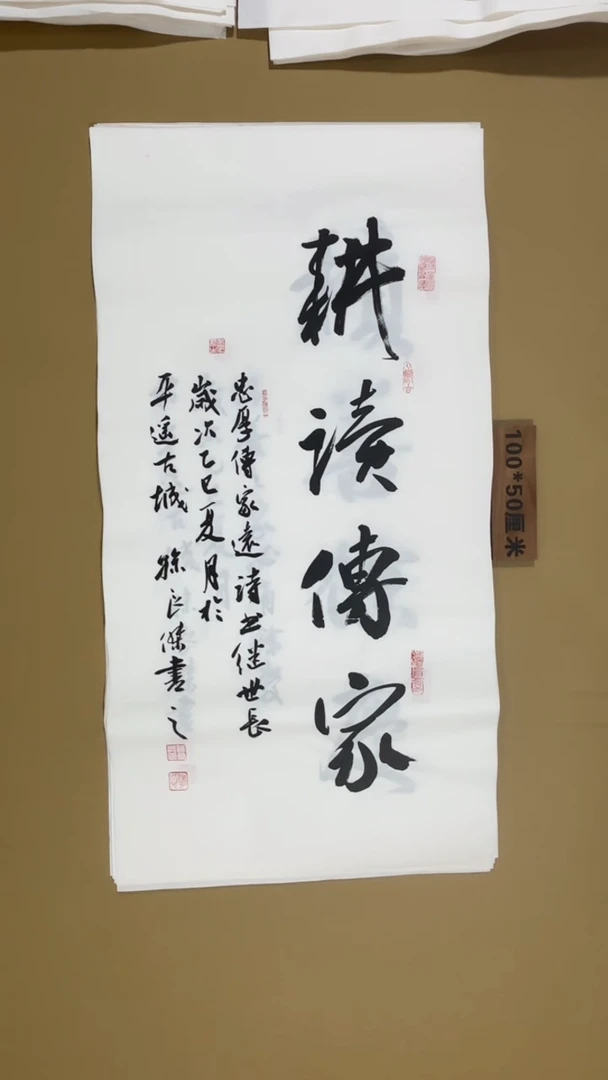 耕讀傳家
忠厚傳家遠詩书继世長
歲次乙巳夏月於
平遥古城 徐良傑書之
100*50厘米